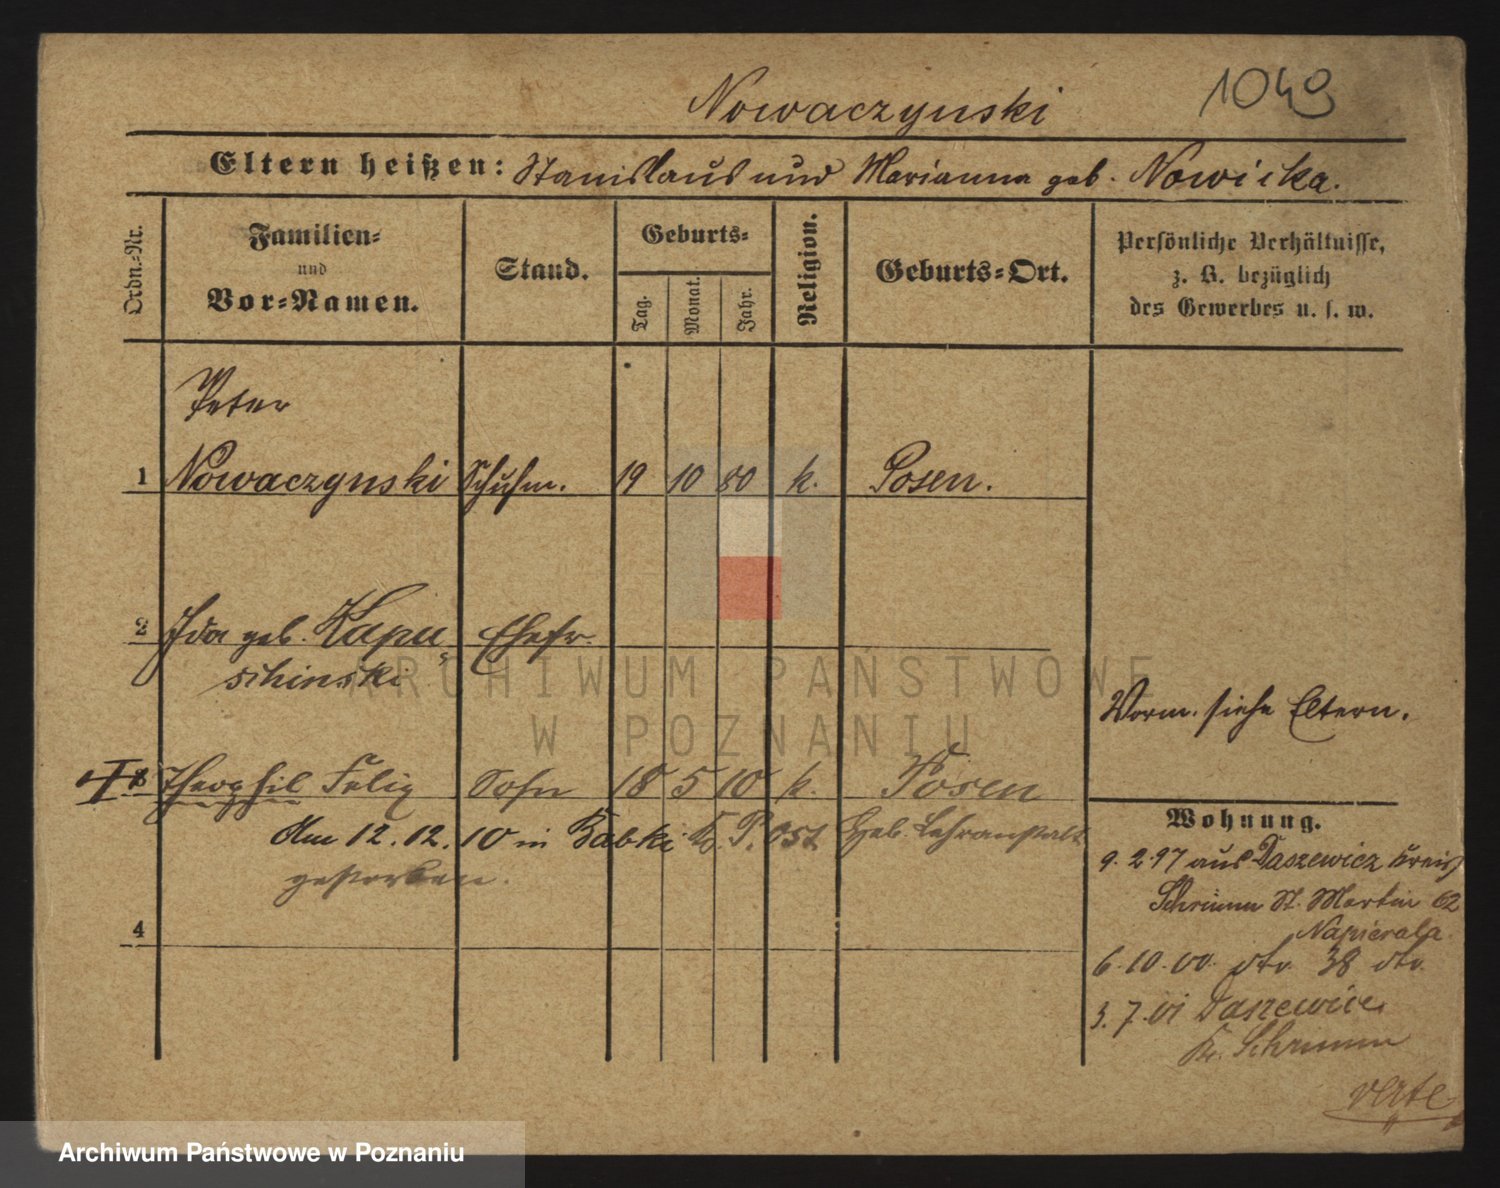 Nowaczynski
1049
Eltern heißen: Stanislaus und Marianna geb. Nowicka.
Ordn.-Nr.
Familien-
und
Vor-Namen.
Stand.
Geburts-
Tag.
Monat.
Jahr.
Religion.
Geburts-Ort.
Persönliche Verhältnisse,
z. B. bezüglich
des Gewerbes u. s. w.
Peter
1 Nowaczynski Schuhm. 19 10 80 k. Posen.
2 Ida geb. Kapu- Ehefr.
schinski
Vorm. siehe Eltern.
3 Theophil Felix Sohn 18 5 10 k. Posen
Am 12.12.10 in Babki Kr. P. Ost Heb. Lehranstalt
gestorben.
4
Wohnung.
9.2.97 aus Daszewicz Kreis
Schrimm St. Martin 62
Napierala
6.10.00. dto. 38 dto.
3.7.01 Daszewice
Kr. Schrimm
verte
ARCHIWUM PAŃSTWOWE
W POZNANIU
Archiwum Państwowe w Poznaniu